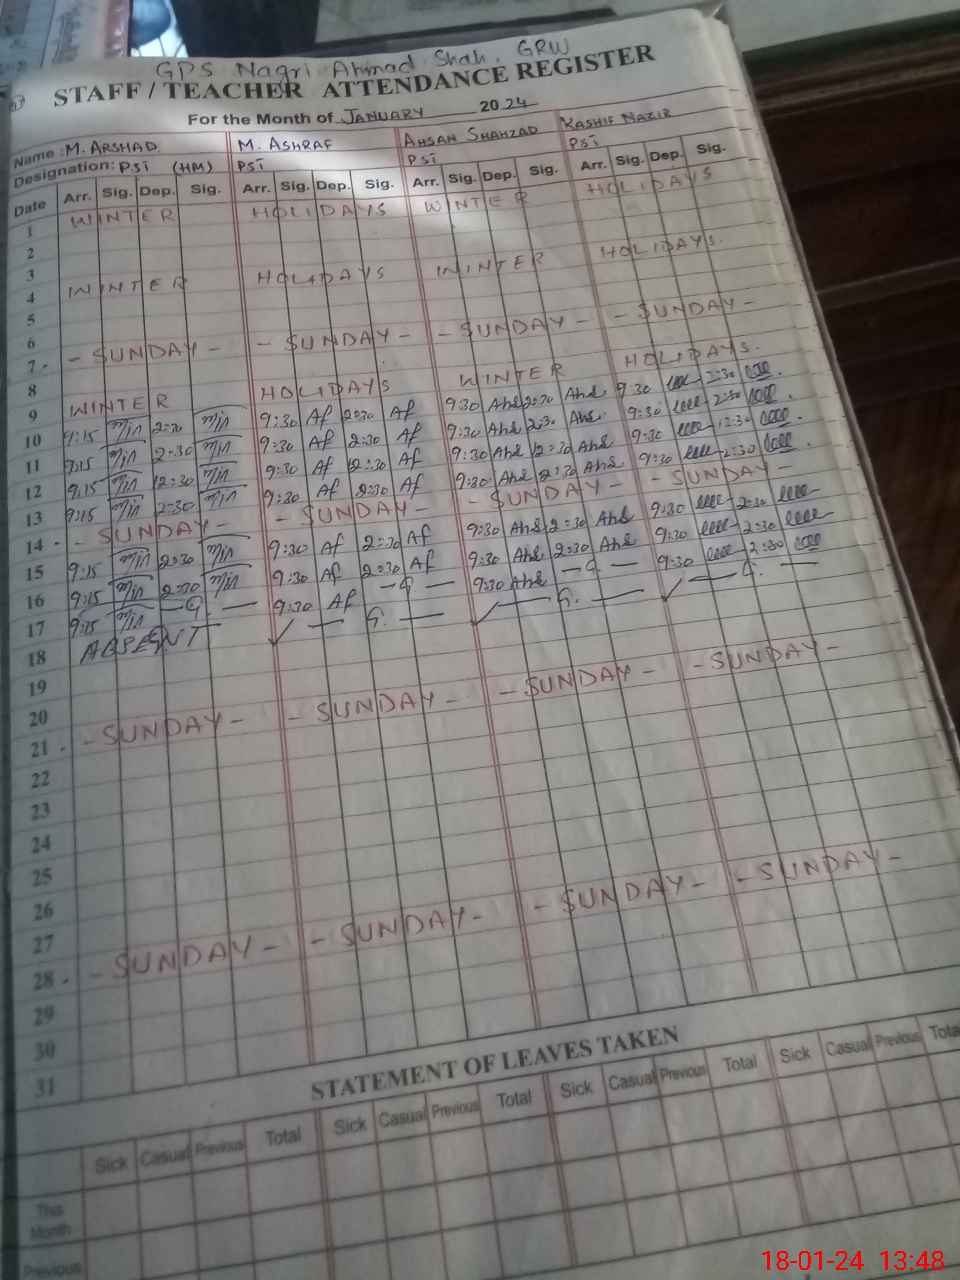 GPS Nagri Ahmad Shah, GRW
STAFF / TEACHER ATTENDANCE REGISTER
For the Month of JANUARY 2024
Name : M. ARSHAD. M. ASHRAF AHSAN SHAHZAD KASHIF NAZIR
Designation: PSI (HM) PSI PSI PSI
Date Arr. Sig. Dep. Sig. Arr. Sig. Dep. Sig. Arr. Sig. Dep. Sig. Arr. Sig. Dep. Sig.
1 WINTER HOLIDAYS WINTER HOLIDAYS
2
3
4 WINTER HOLIDAYS WINTER HOLIDAYS.
5
6
7 - SUNDAY - - SUNDAY - - SUNDAY - - SUNDAY -
8
9 WINTER HOLIDAYS WINTER HOLIDAYS.
10 9:15 2:30 9:30 Af 2:30 Af 9:30 Ahs 2:30 Ahs 9:30 2:30
11 9:15 2:30 9:30 Af 2:30 Af 9:30 Ahs 2:30 Ahs 9:30 2:30
12 9:15 12:30 9:30 Af 12:30 Af 9:30 Ahs 12:30 Ahs 9:30 12:30
13 9:15 2:30 9:30 Af 2:30 Af 9:30 Ahs 2:30 Ahs 9:30 2:30
14 - SUNDAY - - SUNDAY - - SUNDAY - - SUNDAY -
15 9:15 2:30 9:30 Af 2:30 Af 9:30 Ahs 2:30 Ahs 9:30 2:30
16 9:15 2:30 9:30 Af 2:30 Af 9:30 Ahs 2:30 Ahs 9:30 2:30
17 9:15 9:30 Af 9:30 Ahs 9:30 2:30
18 ABSENT
19
20
21 - SUNDAY - - SUNDAY - - SUNDAY - - SUNDAY -
22
23
24
25
26
27
28 - SUNDAY - - SUNDAY - - SUNDAY - - SUNDAY -
29
30
31
STATEMENT OF LEAVES TAKEN
Sick Casual Previous Total Sick Casual Previous Total Sick Casual Previous Total Sick Casual Previous Tota
This
Month
Previous
18-01-24 13:48